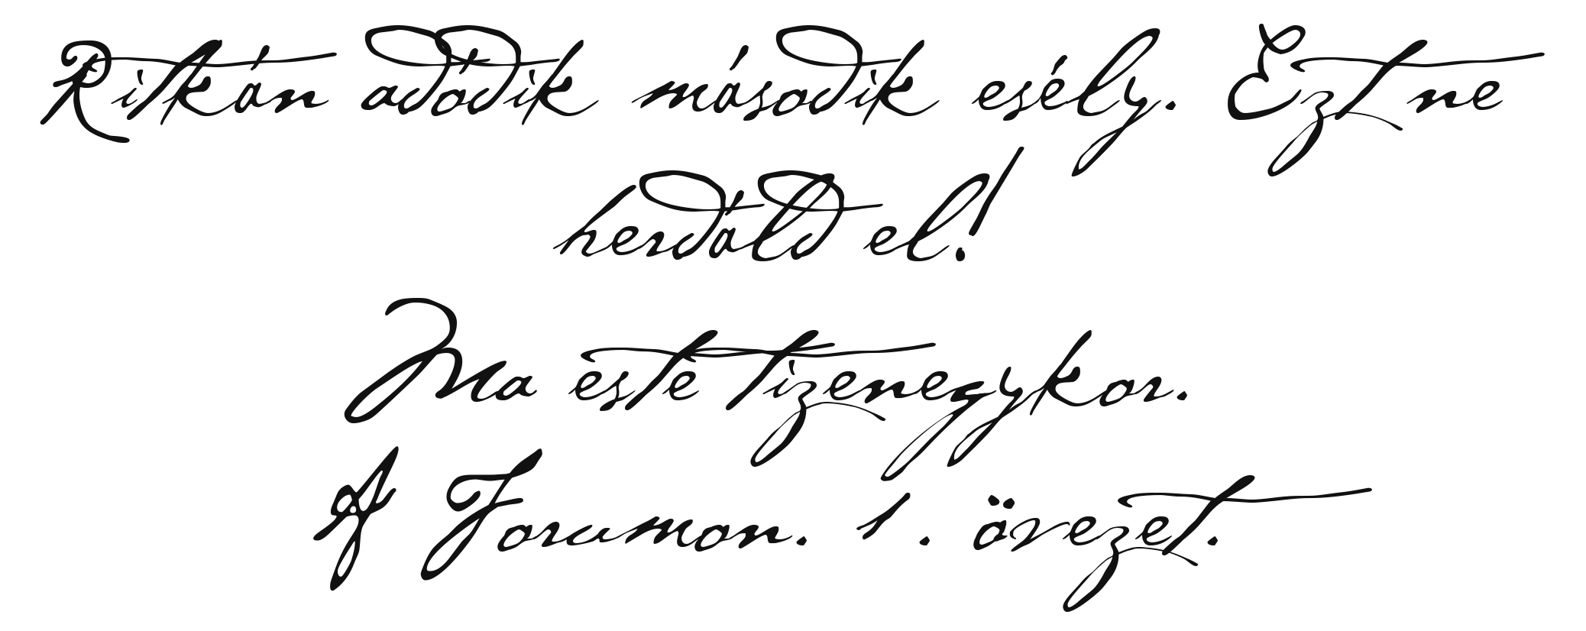 Ritkán adódik második esély. Ezt ne
herdáld el!
Ma este tizenegykor.
A Forumon. 1. övezet.